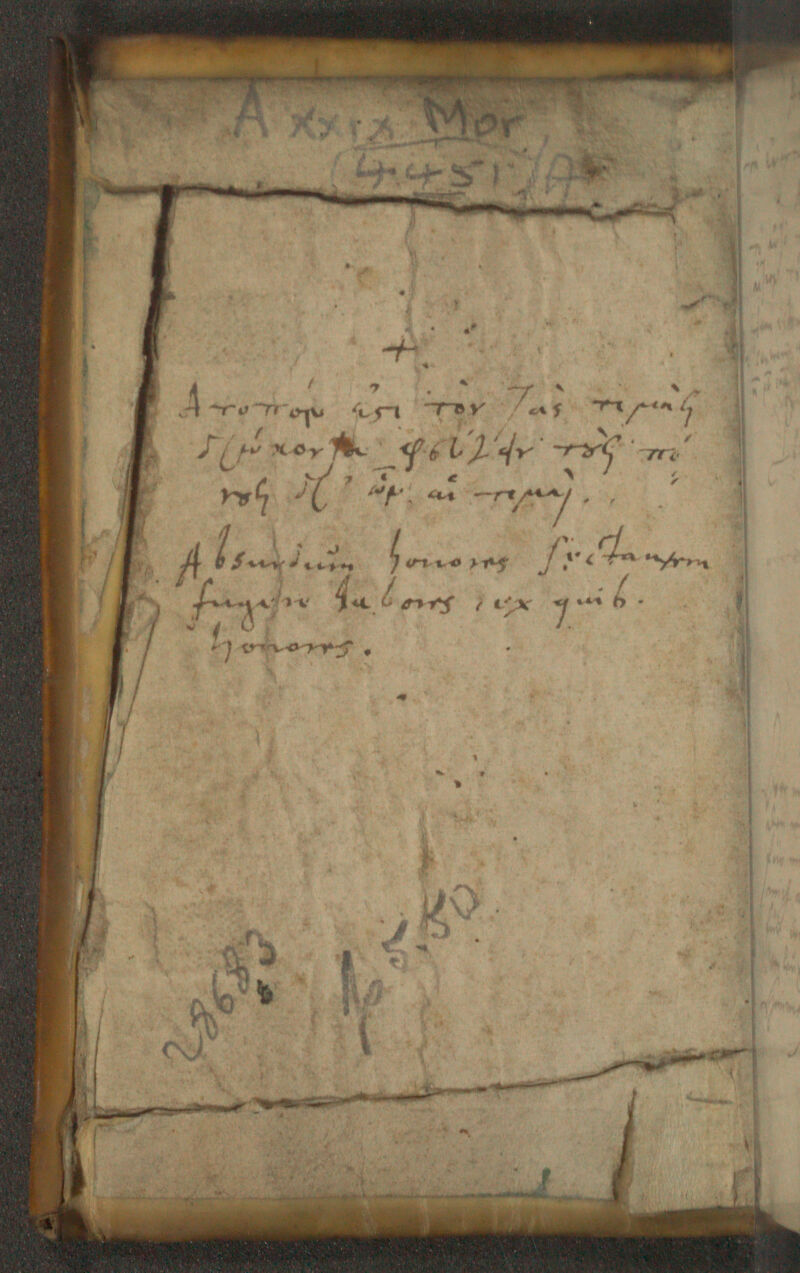 A xxix Mor
(4.451)/A
+
Ἄτοπόν ἐστι τὸν τὰς τιμὰς
διώκοντα φεύγειν τοὺς πό
νους δι' ὧν αἱ τιμαί.
Absurdum honores sectantem
fugere labores, ex quib.
honores.
28683
5.50